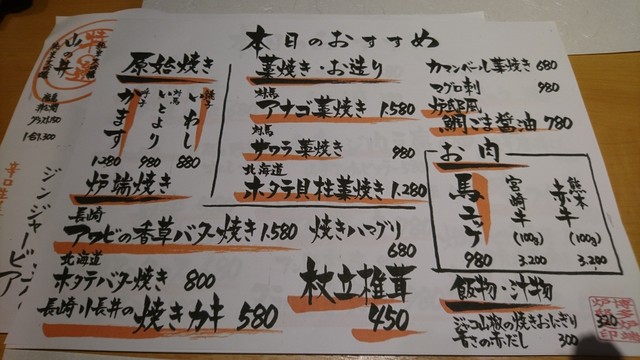 本日のおすすめ
原始焼き
銚子 いわし 880
対馬 いとより 980
かます 1.280
藁焼き・お造り
対馬
アナゴ藁焼き 1.580
対馬
サワラ藁焼き 980
北海道
ホタテ貝柱藁焼き 1.280
カマンベール藁焼き 680
マグロ刺 980
炉邸風
鯛ごま醤油 780
お肉
熊本 赤牛 (100g) 3.200
宮崎牛 (100g) 3.200
馬ユッケ 980
炉端焼き
長崎
アワビの香草バター焼き 1.580
焼きハマグリ 680
北海道
ホタテバター焼き 800
長崎小長井の焼きカキ 580
杖立椎茸 450
飯物・汁物
ジャコ山椒の焼きおにぎり 320
青さの赤だし 300
山の井
1合1.300
ジンジャービア